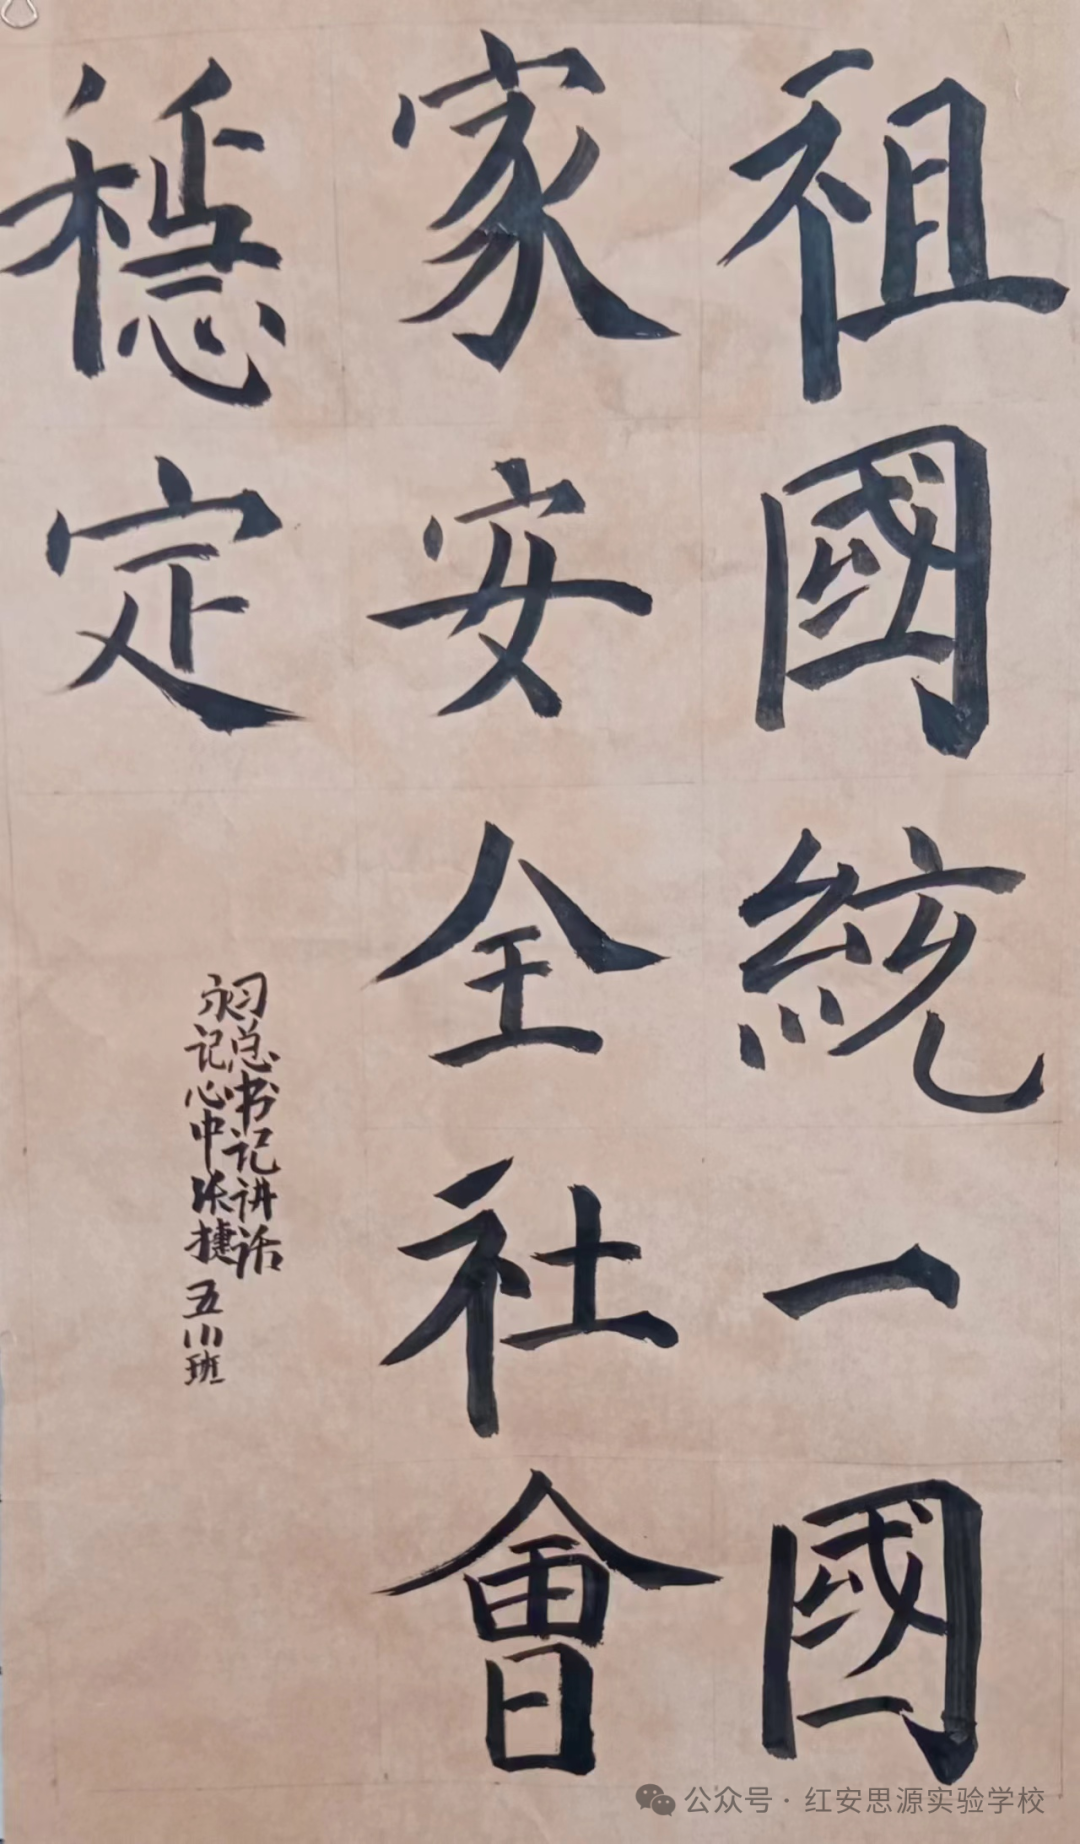 祖國統一國
家安全社會
穩定
习总书记讲话
永记心中张捷五川班
公众号·红安思源实验学校